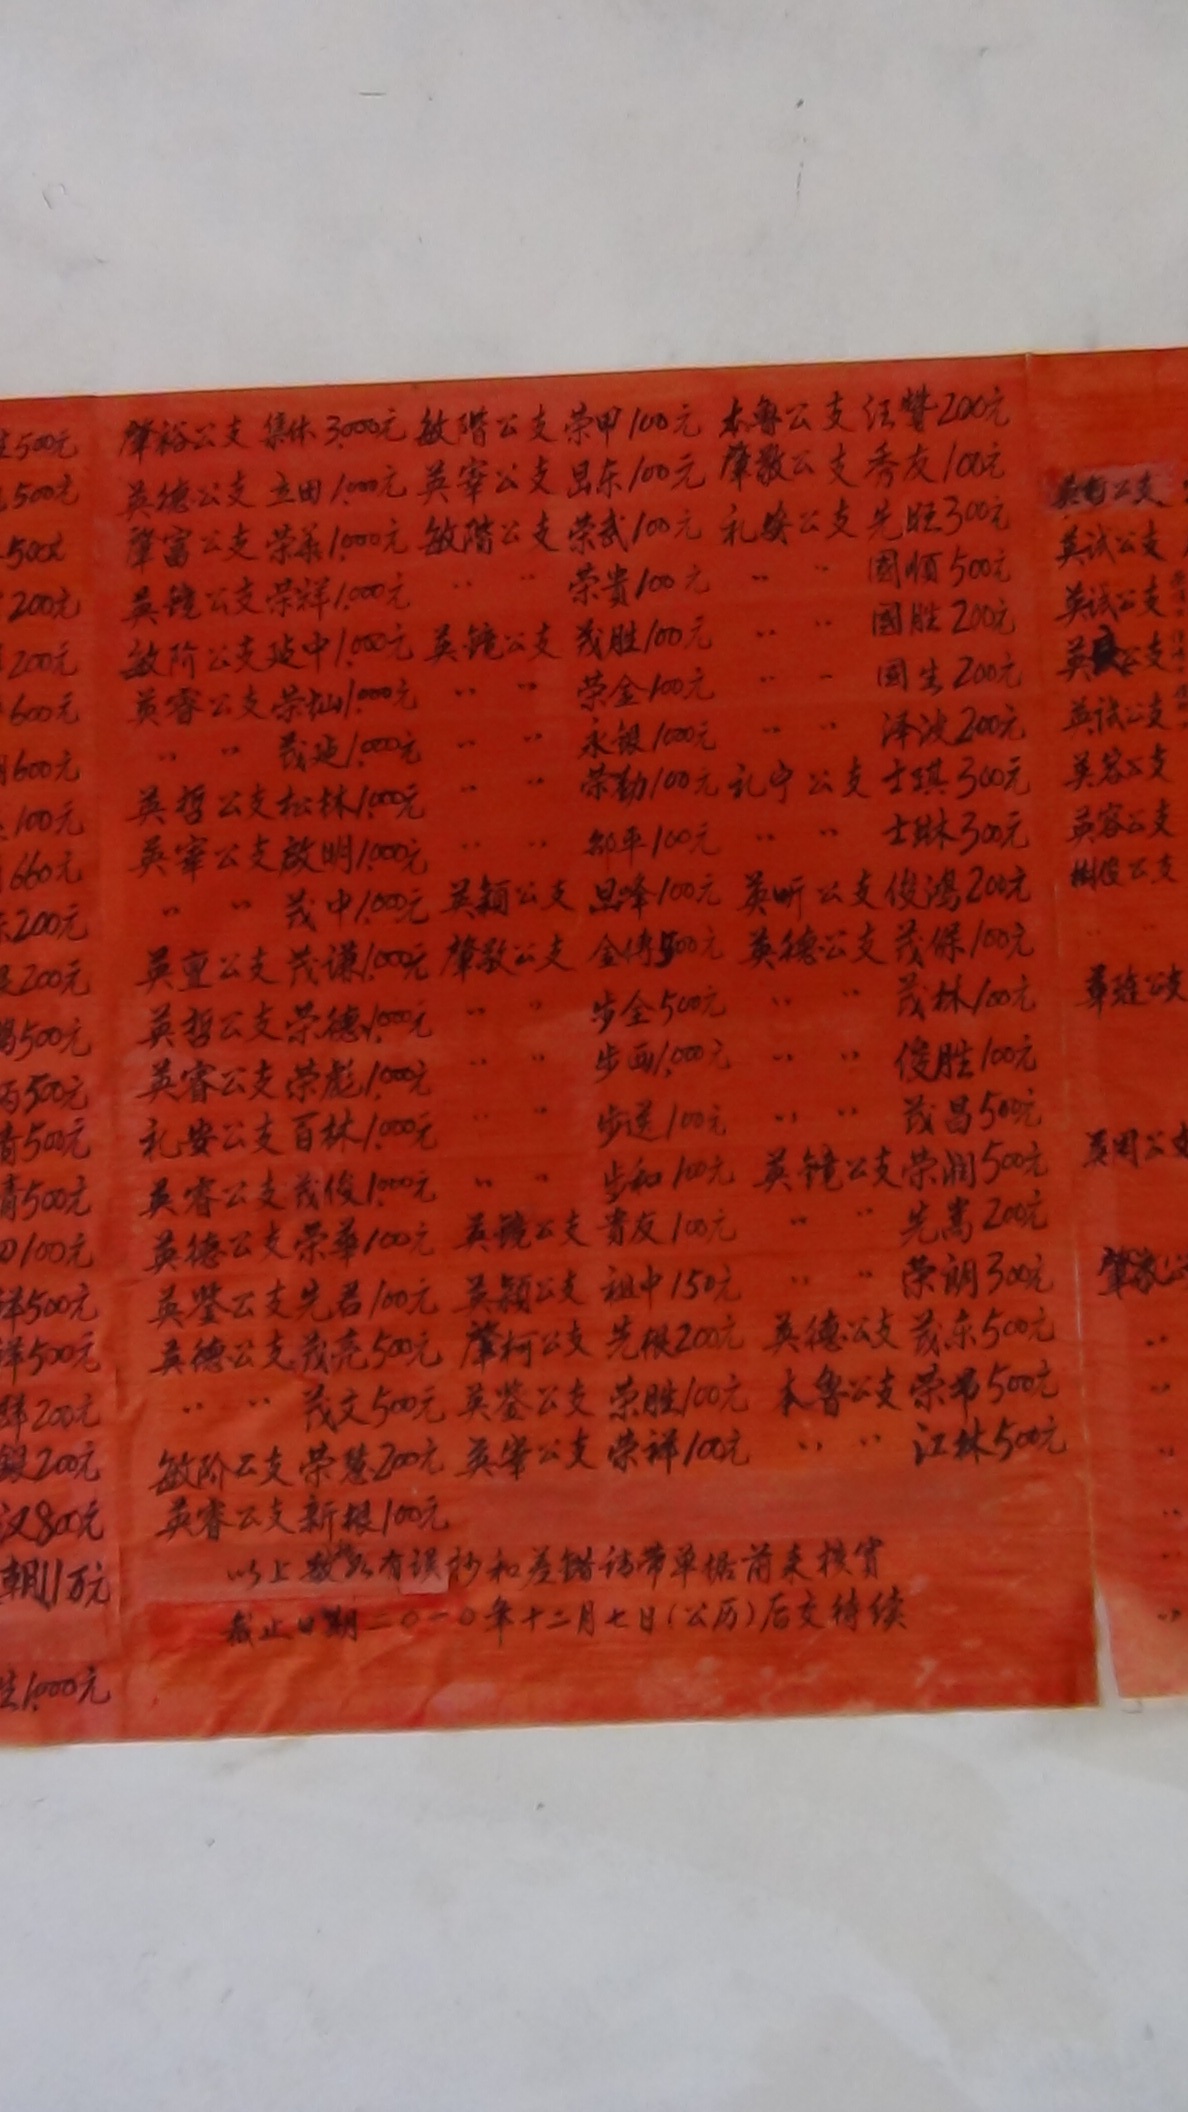 500元 肇裕公支 集体 3,000元 敏階公支 荣甲 100元 本鲁公支 汪赞 200元
500元 英德公支 立田 1,000元 英宰公支 昆东 100元 肇敬公支 秀友 100元
500元 肇富公支 荣华 1,000元 敏階公支 荣武 100元 礼安公支 先旺 300元 英试公支
200元 英镜公支 荣祥 1,000元 〃 〃 荣贵 100元 〃 〃 國順 500元 英试公支
200元 敏阶公支 延中 1,000元 英镜公支 茂胜 100元 〃 〃 國胜 200元 公支
600元 英睿公支 荣灿 1,000元 〃 〃 荣金 100元 〃 〃 國生 200元 英试公支
600元 〃 〃 茂延 1,000元 〃 〃 永银 1000元 〃 〃 泽波 200元 英容公支
100元 英哲公支 松林 1,000元 〃 〃 荣勤 100元 礼宁公支 士琪 300元 英容公支
660元 英宰公支 啟明 1,000元 〃 〃 平 100元 〃 〃 士琳 300元 樹俊公支
200元 〃 〃 茂中 1,000元 英穎公支 峰 100元 英昕公支 俊鸿 200元
200元 英亶公支 茂谦 1,000元 肇敬公支 金传 500元 英德公支 茂保 100元
500元 英哲公支 荣德 1,000元 〃 〃 步全 500元 〃 〃 茂林 100元
500元 英睿公支 荣彪 1,000元 〃 〃 步画 1,000元 〃 〃 俊胜 100元
500元 礼安公支 百林 1,000元 〃 〃 步送 100元 〃 〃 茂昌 500元
500元 英睿公支 茂俊 1,000元 〃 〃 步和 100元 英镜公支 荣润 500元
100元 英德公支 荣華 100元 英镜公支 贵友 100元 〃 〃 先嵩 200元
500元 英鉴公支 先君 100元 英穎公支 祖中 150元 〃 〃 荣朗 300元
500元 英德公支 茂亮 500元 肇柯公支 先根 200元 英德公支 茂东 500元
200元 〃 〃 茂文 500元 英鉴公支 荣胜 100元 本鲁公支 荣书 500元
200元 敏阶公支 荣慧 200元 英宰公支 荣祥 100元 〃 〃 江林 500元
汉 800元 英睿公支 新根 100元
朝 1万元 以上数 有误抄和差错请带单据前来核實
截止日期二〇一〇年十二月七日(公历)后交待续
1,000元